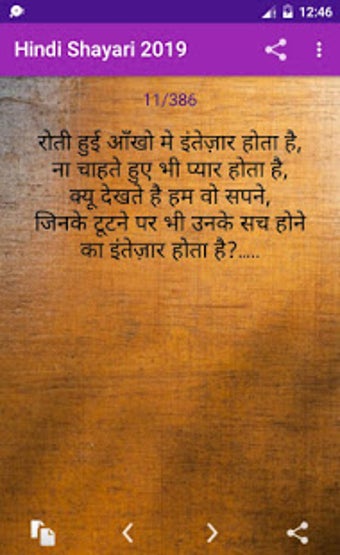 12:46
Hindi Shayari 2019
11/386
रोती हुई आँखो मे इंतेज़ार होता है,
ना चाहते हुए भी प्यार होता है,
क्यू देखते है हम वो सपने,
जिनके टूटने पर भी उनके सच होने
का इंतेज़ार होता है?.....